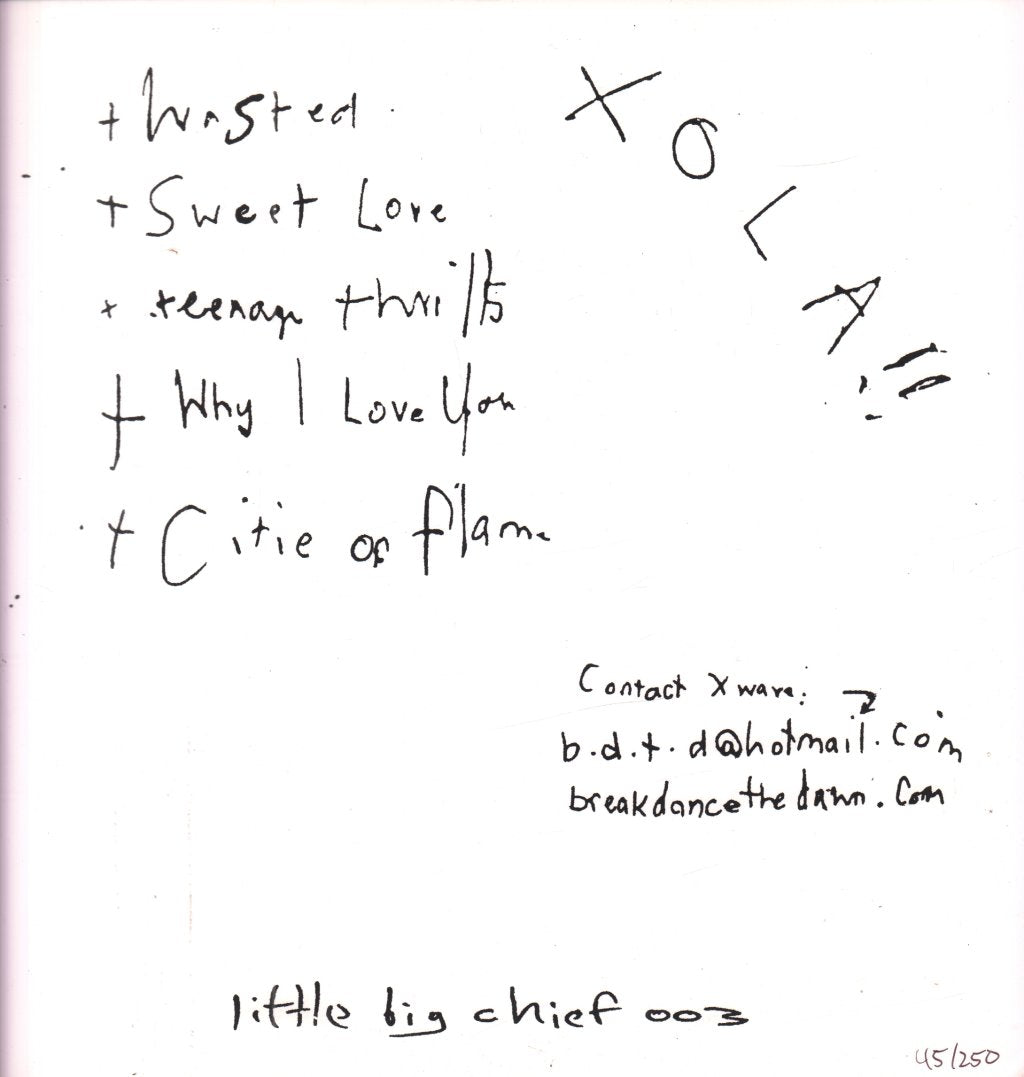 + Wasted
+ Sweet Love
+ teenage thrills
+ Why I Love You
+ Citie of flame
XOLA!!
Contact Xwave:
b.d.t.d@hotmail.com
breakdancethedawn.com
little big chief 003
45/250